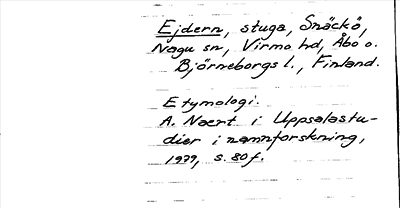 Ejdern, stuga, Snäckö,
Nagu sn, Virmo hd, Åbo o.
Björneborgs l., Finland.
Etymologi.
A. Naert i Uppsalastu-
dier i namnforskning,
1979, s. 80f.